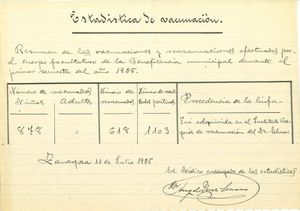 Estadística de vacunación.
Resumen de las vacunaciones y revacunaciones efectuadas por
el cuerpo facultativo de la Beneficencia municipal durante el
primer semestre del año 1935.
Número de vacunados Número de Número de Procedencia de la linfa
Niños Adultos revacunados positivos
878 " 618 1103 Fué adquirida en el Instituto
de vacunación del Dr.
Zaragoza 11 de Julio 1935
El Médico encargado de las estadísticas